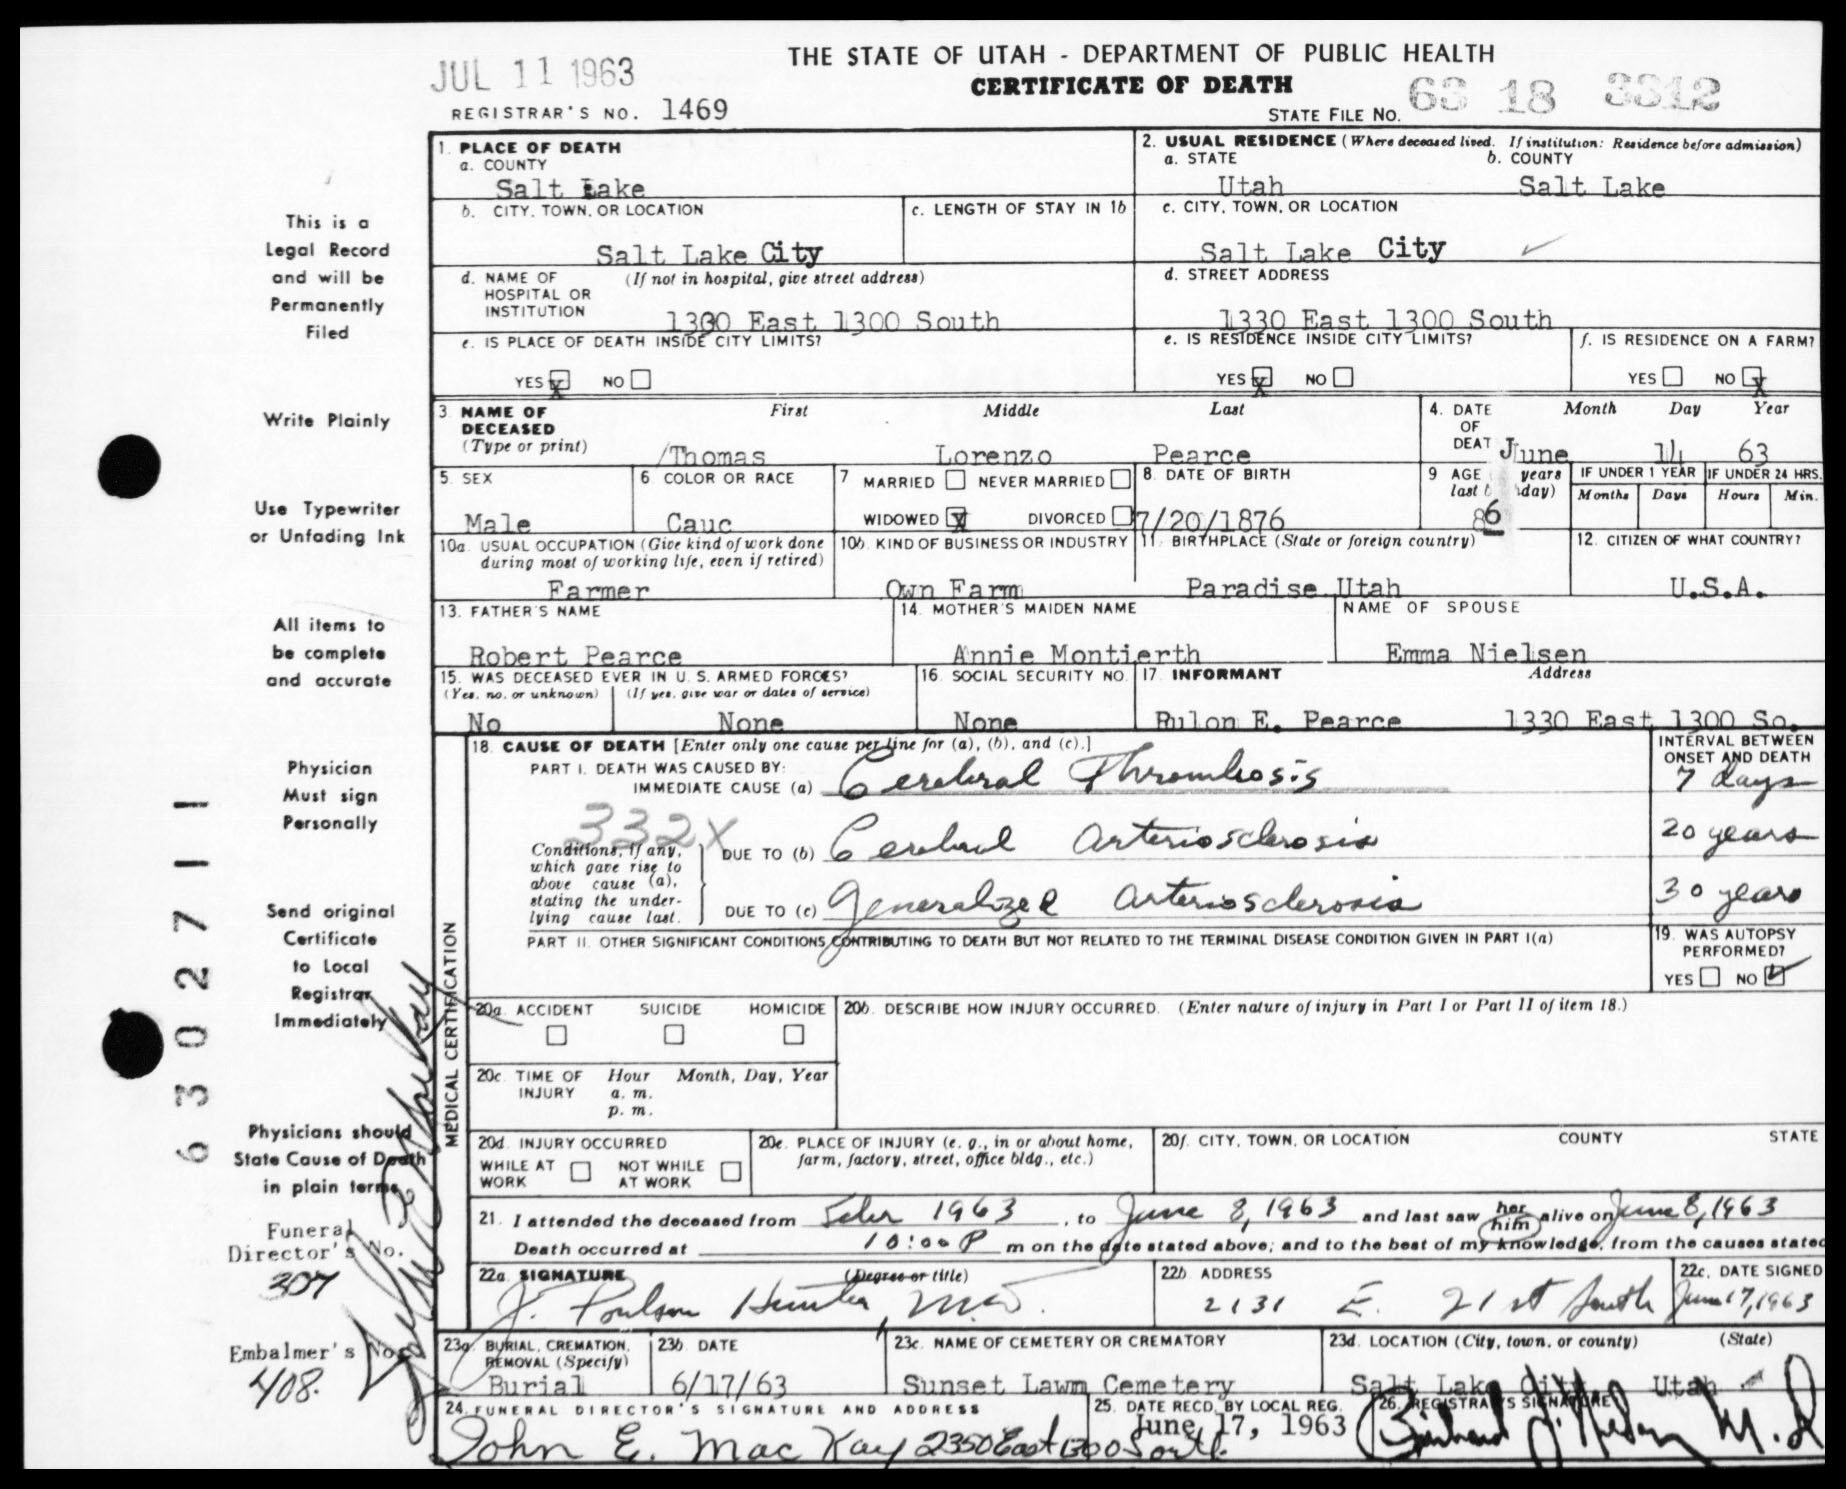 THE STATE OF UTAH - DEPARTMENT OF PUBLIC HEALTH
JUL 11 1963
CERTIFICATE OF DEATH
REGISTRAR'S NO. 1469
STATE FILE NO. 63 18 3312
1. PLACE OF DEATH
a. COUNTY
Salt Lake
2. USUAL RESIDENCE (Where deceased lived. If institution: Residence before admission)
a. STATE b. COUNTY
Utah Salt Lake
b. CITY, TOWN, OR LOCATION
Salt Lake City
c. LENGTH OF STAY IN 1b
c. CITY, TOWN, OR LOCATION
Salt Lake City
d. NAME OF HOSPITAL OR INSTITUTION (If not in hospital, give street address)
1330 East 1300 South
d. STREET ADDRESS
1330 East 1300 South
e. IS PLACE OF DEATH INSIDE CITY LIMITS?
YES X NO
e. IS RESIDENCE INSIDE CITY LIMITS?
YES X NO
f. IS RESIDENCE ON A FARM?
YES NO X
3. NAME OF DECEASED (Type or print)
First Middle Last
Thomas Lorenzo Pearce
4. DATE OF DEAT
Month Day Year
June 14 63
5. SEX
Male
6 COLOR OR RACE
Cauc
7 MARRIED NEVER MARRIED
WIDOWED X DIVORCED
8. DATE OF BIRTH
7/20/1876
9 AGE years
last b day)
86
IF UNDER 1 YEAR
Months Days
IF UNDER 24 HRS.
Hours Min.
10a. USUAL OCCUPATION (Give kind of work done during most of working life, even if retired)
Farmer
10b. KIND OF BUSINESS OR INDUSTRY
Own Farm
11. BIRTHPLACE (State or foreign country)
Paradise Utah
12. CITIZEN OF WHAT COUNTRY?
U.S.A.
13. FATHER'S NAME
Robert Pearce
14. MOTHER'S MAIDEN NAME
Annie Montierth
NAME OF SPOUSE
Emma Nielsen
15. WAS DECEASED EVER IN U. S. ARMED FORCES?
(Yes, no, or unknown) (If yes, give war or dates of service)
No None
16. SOCIAL SECURITY NO.
None
17. INFORMANT Address
Rulon E. Pearce 1330 East 1300 So.
MEDICAL CERTIFICATION
18. CAUSE OF DEATH [Enter only one cause per line for (a), (b), and (c).]
PART I. DEATH WAS CAUSED BY:
IMMEDIATE CAUSE (a) Cerebral Thrombosis
INTERVAL BETWEEN ONSET AND DEATH
7 days
332X
Conditions, if any, which gave rise to above cause (a), stating the underlying cause last.
DUE TO (b) Cerebral Arteriosclerosis
20 years
DUE TO (c) Generalized Arteriosclerosis
30 years
PART II. OTHER SIGNIFICANT CONDITIONS CONTRIBUTING TO DEATH BUT NOT RELATED TO THE TERMINAL DISEASE CONDITION GIVEN IN PART I(a)
19. WAS AUTOPSY PERFORMED?
YES NO
20a. ACCIDENT SUICIDE HOMICIDE
20b. DESCRIBE HOW INJURY OCCURRED. (Enter nature of injury in Part I or Part II of item 18.)
20c. TIME OF INJURY Hour Month, Day, Year
a. m.
p. m.
20d. INJURY OCCURRED
WHILE AT WORK NOT WHILE AT WORK
20e. PLACE OF INJURY (e. g., in or about home, farm, factory, street, office bldg., etc.)
20f. CITY, TOWN, OR LOCATION COUNTY STATE
21. I attended the deceased from Febr 1963, to June 8, 1963 and last saw her him alive on June 8, 1963
Death occurred at 10:00 P m on the date stated above; and to the best of my knowledge, from the causes stated
22a. SIGNATURE (Degree or title)
J. Poulson Hunter M.D.
22b. ADDRESS
2131 E. 21st South
22c. DATE SIGNED
June 17, 1963
23a. BURIAL, CREMATION, REMOVAL (Specify)
Burial
23b. DATE
6/17/63
23c. NAME OF CEMETERY OR CREMATORY
Sunset Lawn Cemetery
23d. LOCATION (City, town, or county) (State)
Salt Lake City Utah
24. FUNERAL DIRECTOR'S SIGNATURE AND ADDRESS
John E. Mac Kay 2350 East 1300 South
25. DATE RECD. BY LOCAL REG.
June 17, 1963
26. REGISTRAR'S SIGNATURE
M.D
This is a
Legal Record
and will be
Permanently
Filed
Write Plainly
Use Typewriter
or Unfading Ink
All items to
be complete
and accurate
Physician
Must sign
Personally
Send original
Certificate
to Local
Registrar
Immediately
Physicians should
State Cause of Death
in plain terms
Funeral
Director's No.
307
Embalmer's No.
408.
6302711